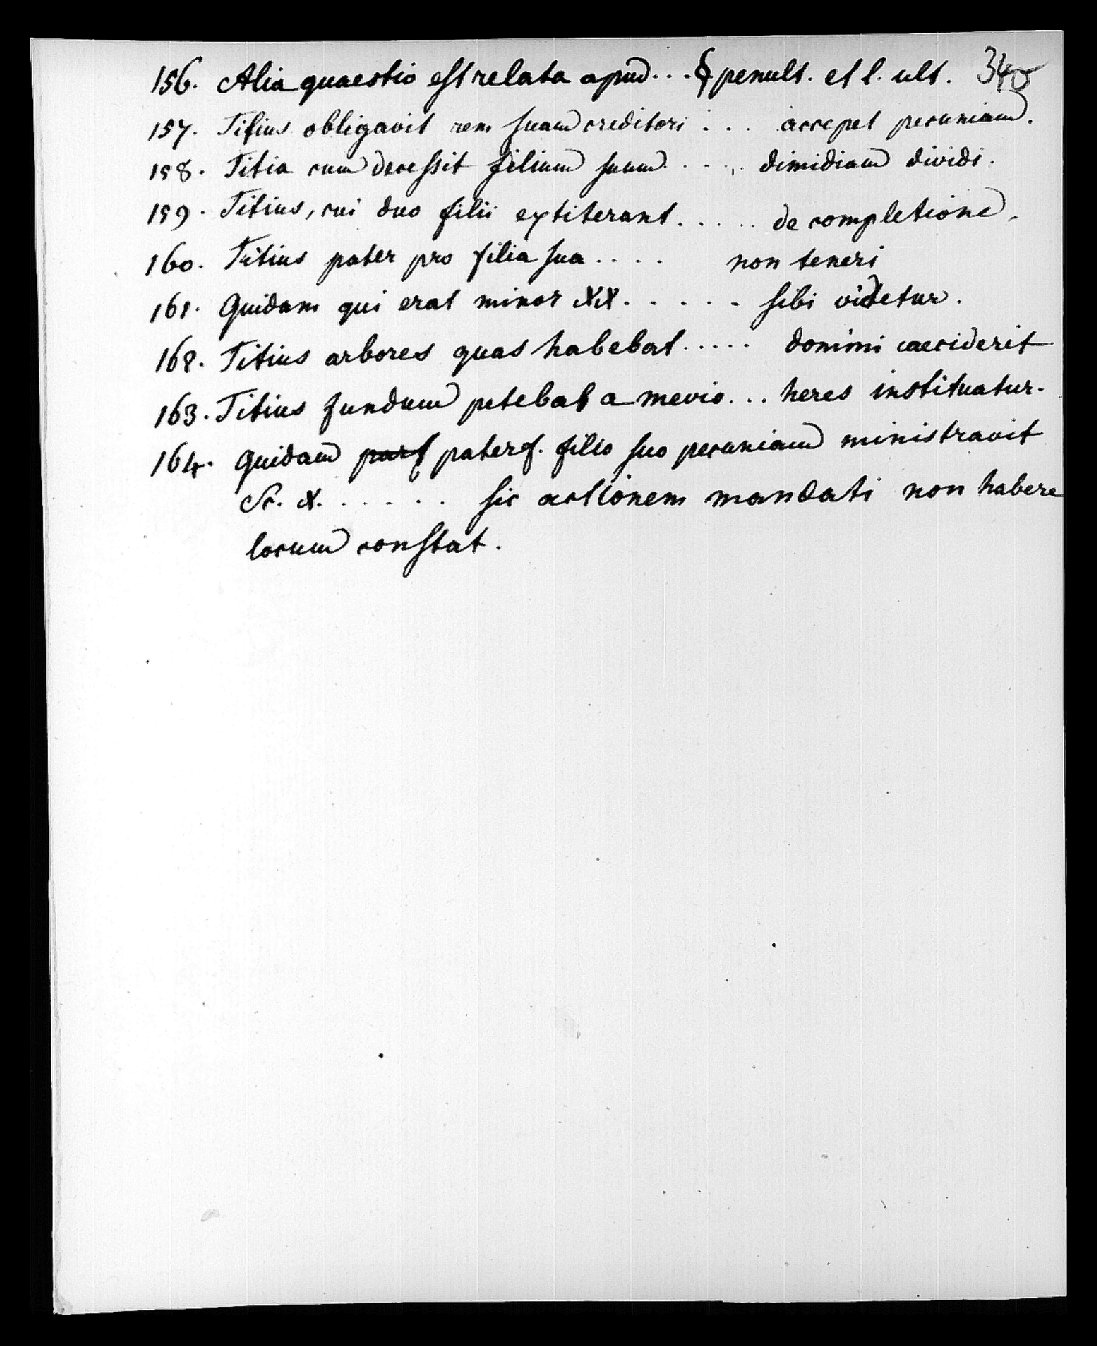 340
156. Alia quaestio est relata apud... § penult. et l. ult.
157. Titius obligavit rem suam creditori... accepet pecuniam.
158. Titia cum decessit filium suum.... dimidiam dividi.
159. Titius, cui duo filii extiterant..... de completione.
160. Titius pater pro filia sua.... non teneri
161. Quidam qui erat minor XX..... sibi videtur.
162. Titius arbores quas habebat..... domini caeciderit
163. Titius fundum petebat a mevio... heres instituatur.
164. Quidam paterf. filio suo pecuniam ministravit
Sc. X...... sic actionem mandati non habere
locum constat.